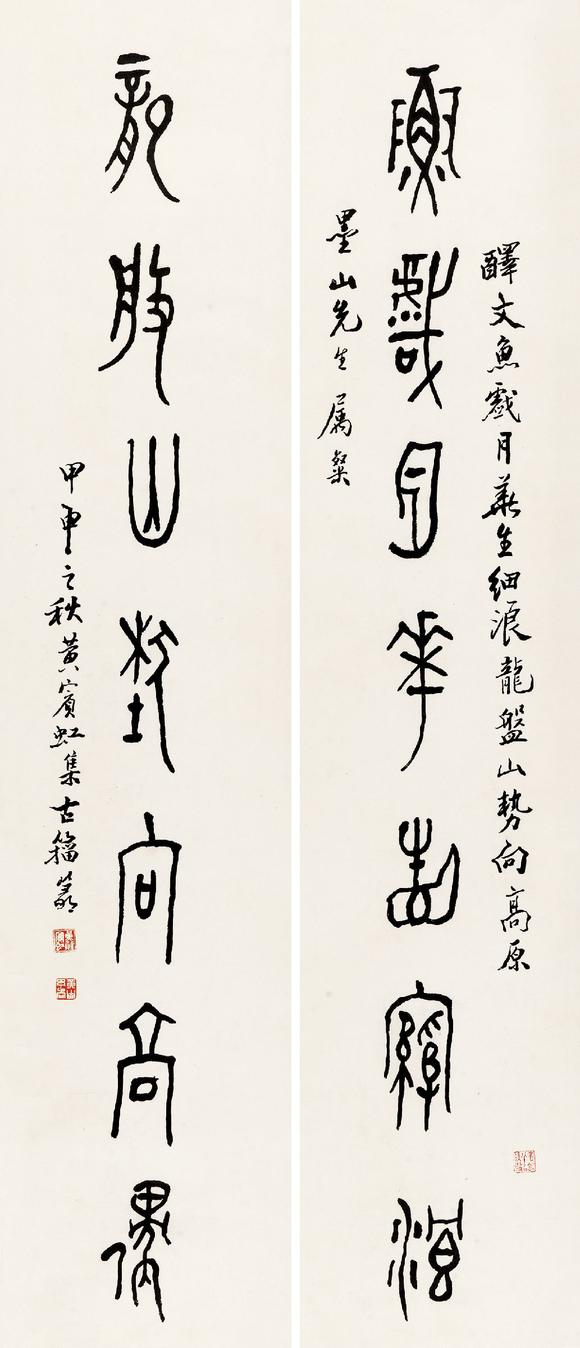 醳文魚戲月華生細浪龍盤山勢向高原
魚戲月華生細浪
墨山先生屬粲
龍盤山勢向高原
甲申之秋黃賓虹集古籀篆